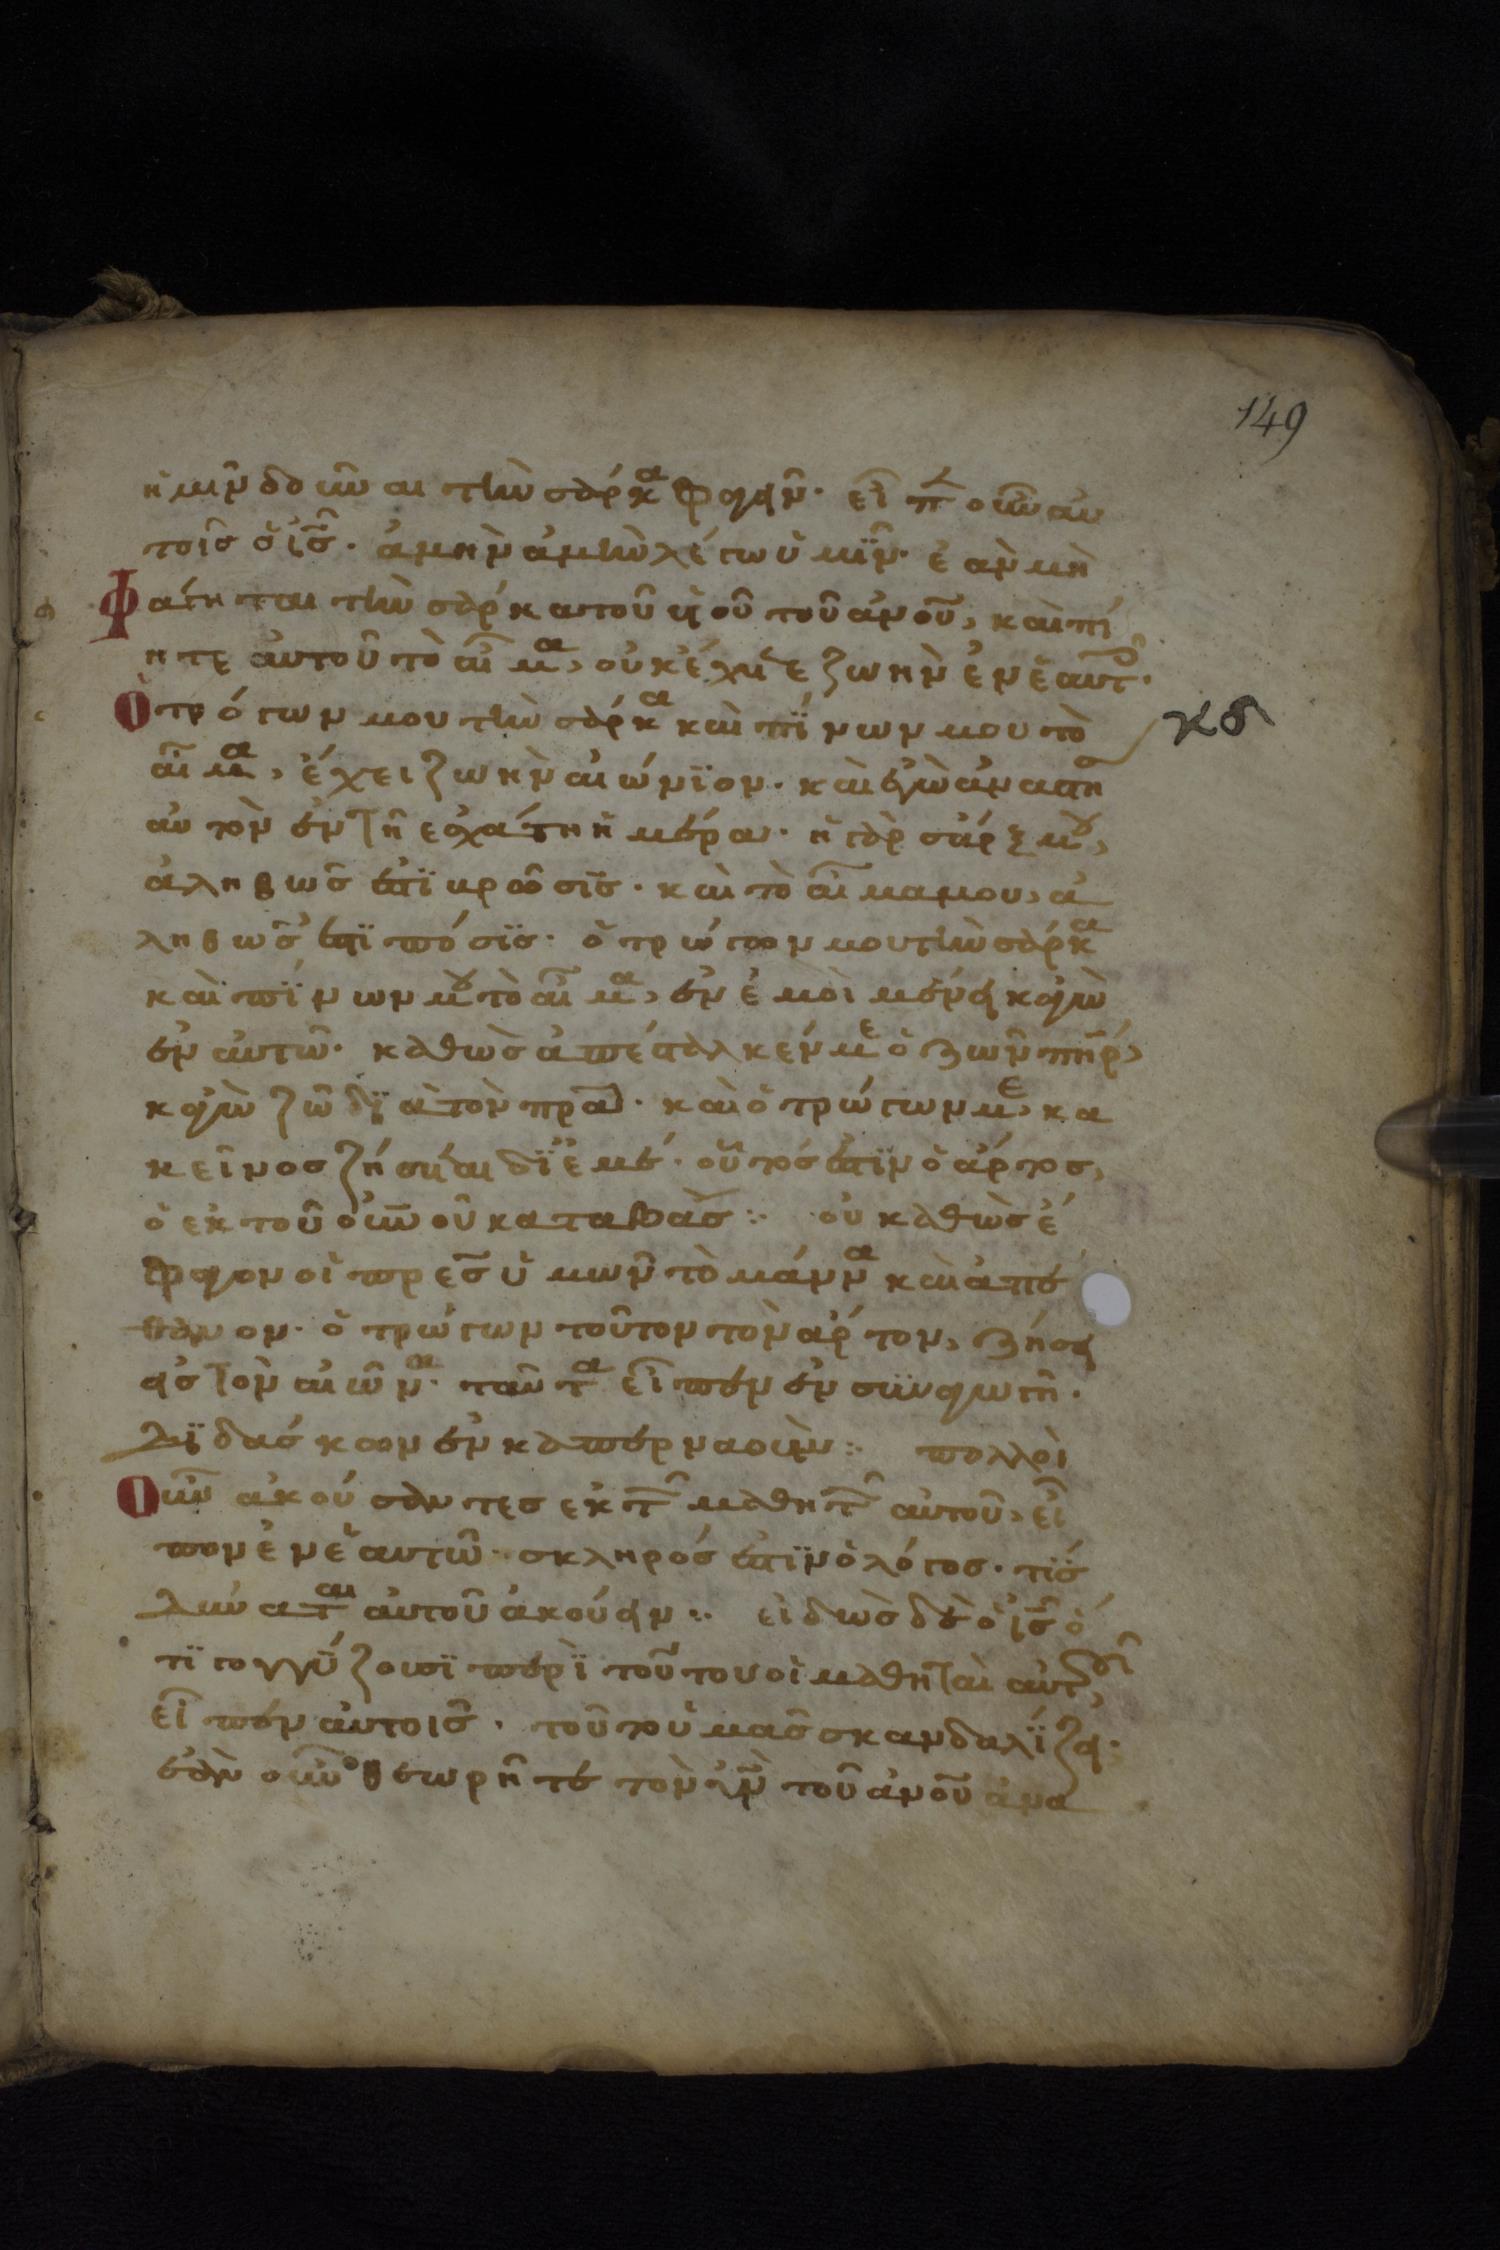 149
ἡμῖν δοῦναι τὴν σάρκα φαγεῖν· εἶπ οὖν αὐ
τοῖσ ὁ ἰσ̅· ἀμὴν ἀμὴν λέγω ὑμῖν· ἐὰν μὴ
Φάγηται τὴν σάρκα τοῦ υἱοῦ τοῦ ἀν̅ου, καὶ πί
ητε αὐτοῦ τὸ αἷμα, οὐκ ἔχετε ζωὴν ἐν ἑαυτοῖς·
Ὁ τρόγων μου τὴν σάρκα καὶ πΐνων μου τὸ
κδ
αἷμα, ἔχει ζωὴν αἰώνϊον· καὶ ἐγὼ ἀναστήσ
αὐτὸν ἐν τῆ εσχάτη ἡμέρα· ἡ γὰρ σάρξ μου,
ἀληθῶσ ἐστϊ βρῶσϊσ· καὶ τὸ αἷμα μου, ἀ
ληθῶσ ἐστϊ πόσϊσ· ὁ τρώγων μου τὴν σάρκα
καὶ πΐνων μου τὸ αἷμα, ἐν ἐμοὶ μένει καγὼ
ἐν αὐτῶ· καθὼσ ἀπέσταλκέν με ὁ ζῶν πη̅ρ,
καγὼ ζῶ δϊὰ τὸν πρ̅α· καὶ ὁ τρώγων με, κα
κεῖνοσ ζήσεται δϊ ἐμέ· οὗτόσ ἐστϊν ὁ ἄρτοσ,
ὁ ἐκ τοῦ οὐν̅οῦ καταβάσ :· οὐ καθὼσ ἔ
φαγον οἱ πρ̅εσ ὑμῶν τὸ μάννα καὶ ἀπέ
θανον· ὁ τρώγων τοῦτον τὸν ἄρτον, ζήσει
εἰσ τὸν αἰῶνα· ταῦτα εἶπεν ἐν συναγωγῆ·
δϊδάσκων ἐν καπερναούμ :· πολλοὶ
Οὖν ἀκούσαντεσ εκ τῶν μαθητῶν αὐτοῦ, εἶ
πον ἐν ἑαυτῶ· σκληρόσ ἐστϊν ὁ λόγοσ· τίσ
δύναται αὐτοῦ ἀκούειν :· εἰδὼσ δὲ ὁ ἰσ̅ ὅ
τϊ γογγύζουσϊ περὶ τοῦτου οἱ μαθηταὶ αὐτοῦ,
εἶπεν αὐτοῖσ· τοῦτο ὑμᾶσ σκανδαλΐζει·
ἐὰν οὖν θεωρῆτε τὸν υἱ̅ν τοῦ ἀν̅οῦ ἀνα